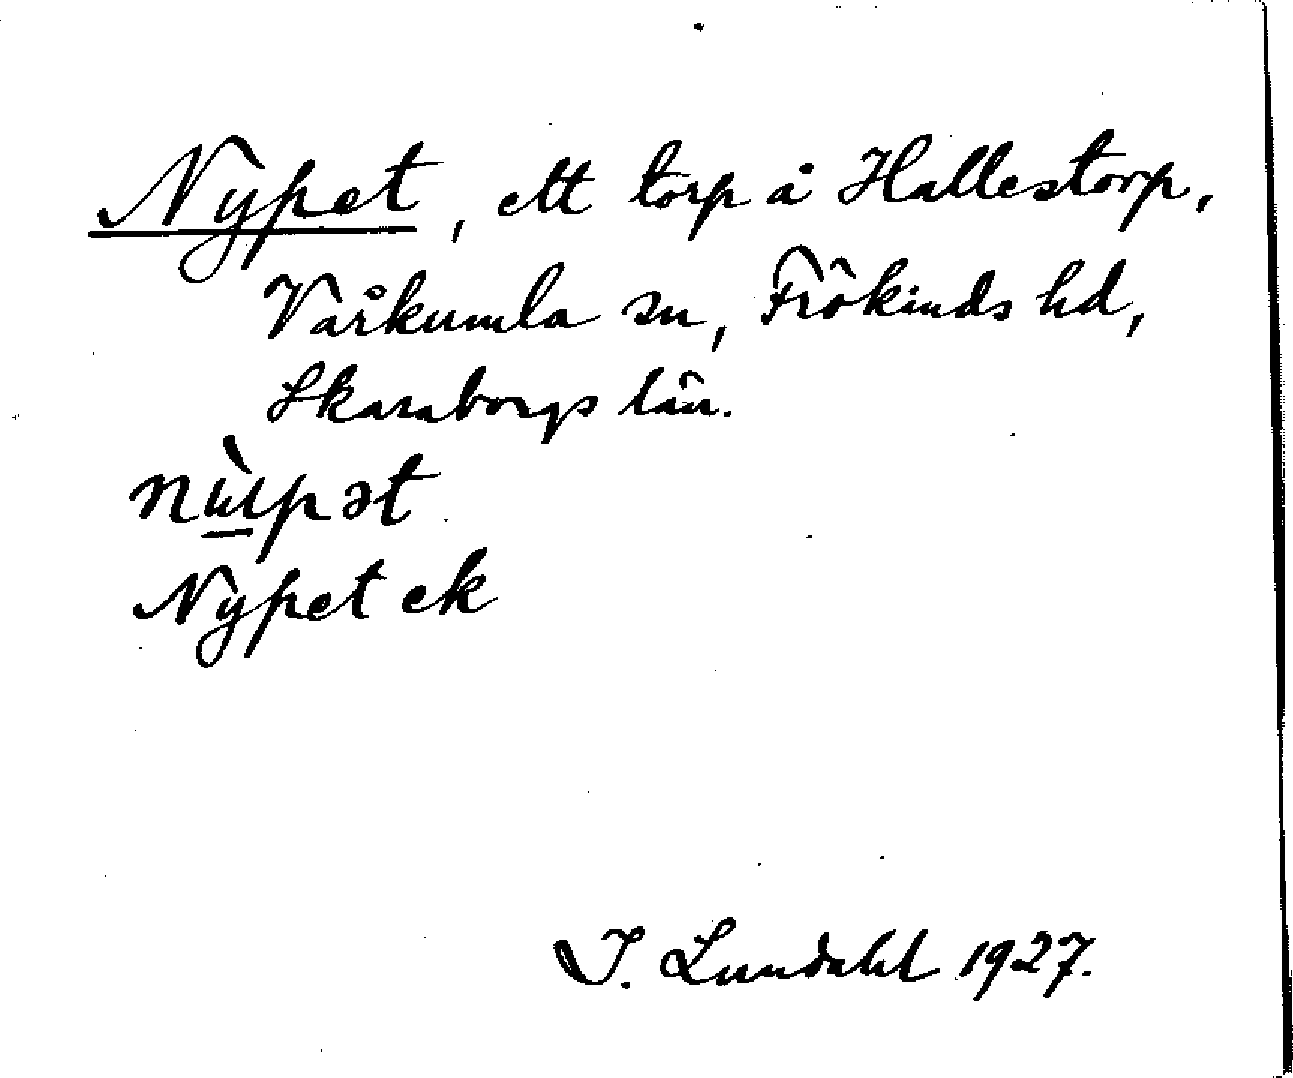 Nypet, ett torp å Hallestorp,
Vårkumla sn, Frökinds hd,
Skaraborgs län.
Nypet ek
I. Lundahl 1927.